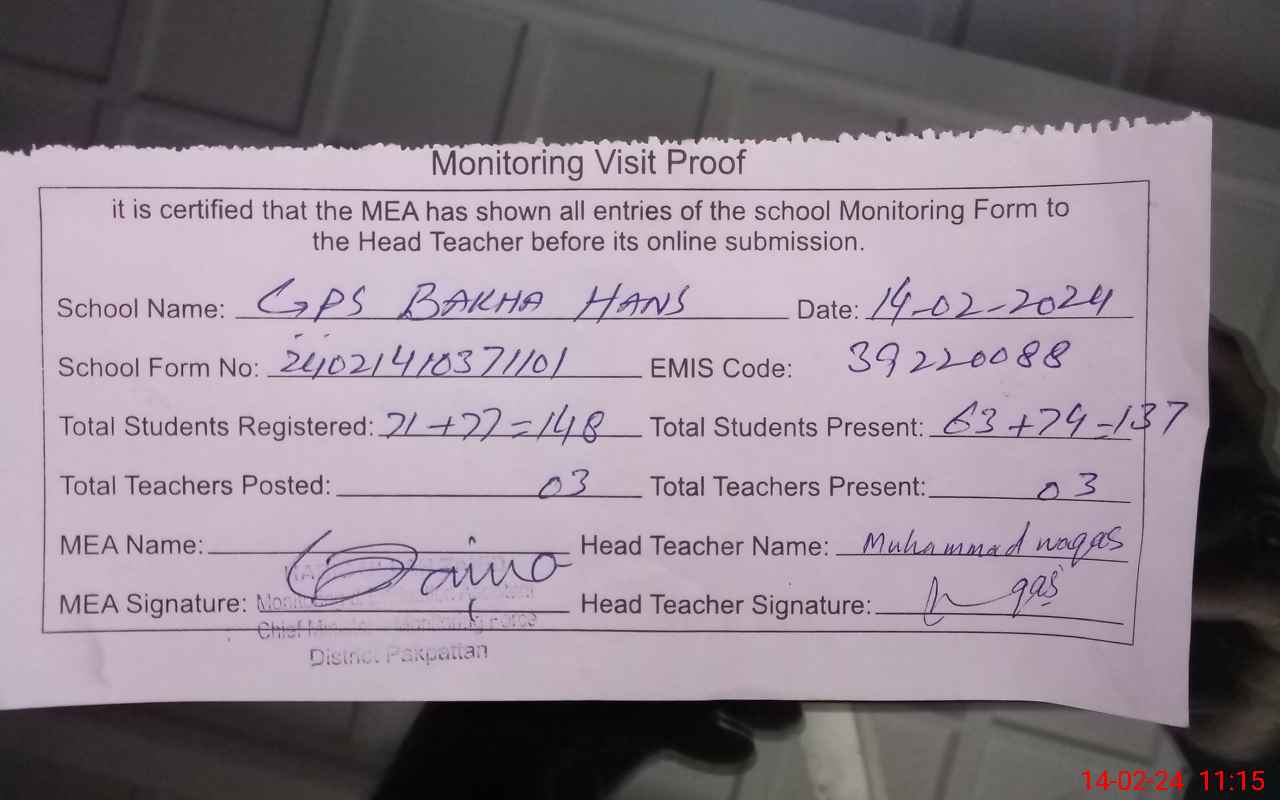 Monitoring Visit Proof
it is certified that the MEA has shown all entries of the school Monitoring Form to
the Head Teacher before its online submission.
School Name: GPS BAKHA HANS Date: 14-02-2024
School Form No: 24021410371101 EMIS Code: 39220088
Total Students Registered: 71+77=148 Total Students Present: 63+74=137
Total Teachers Posted: 03 Total Teachers Present: 03
MEA Name: Head Teacher Name: Muhammad waqas
MEA Signature: Head Teacher Signature:
Monitoring Force
District Pakpattan
14-02-24 11:15